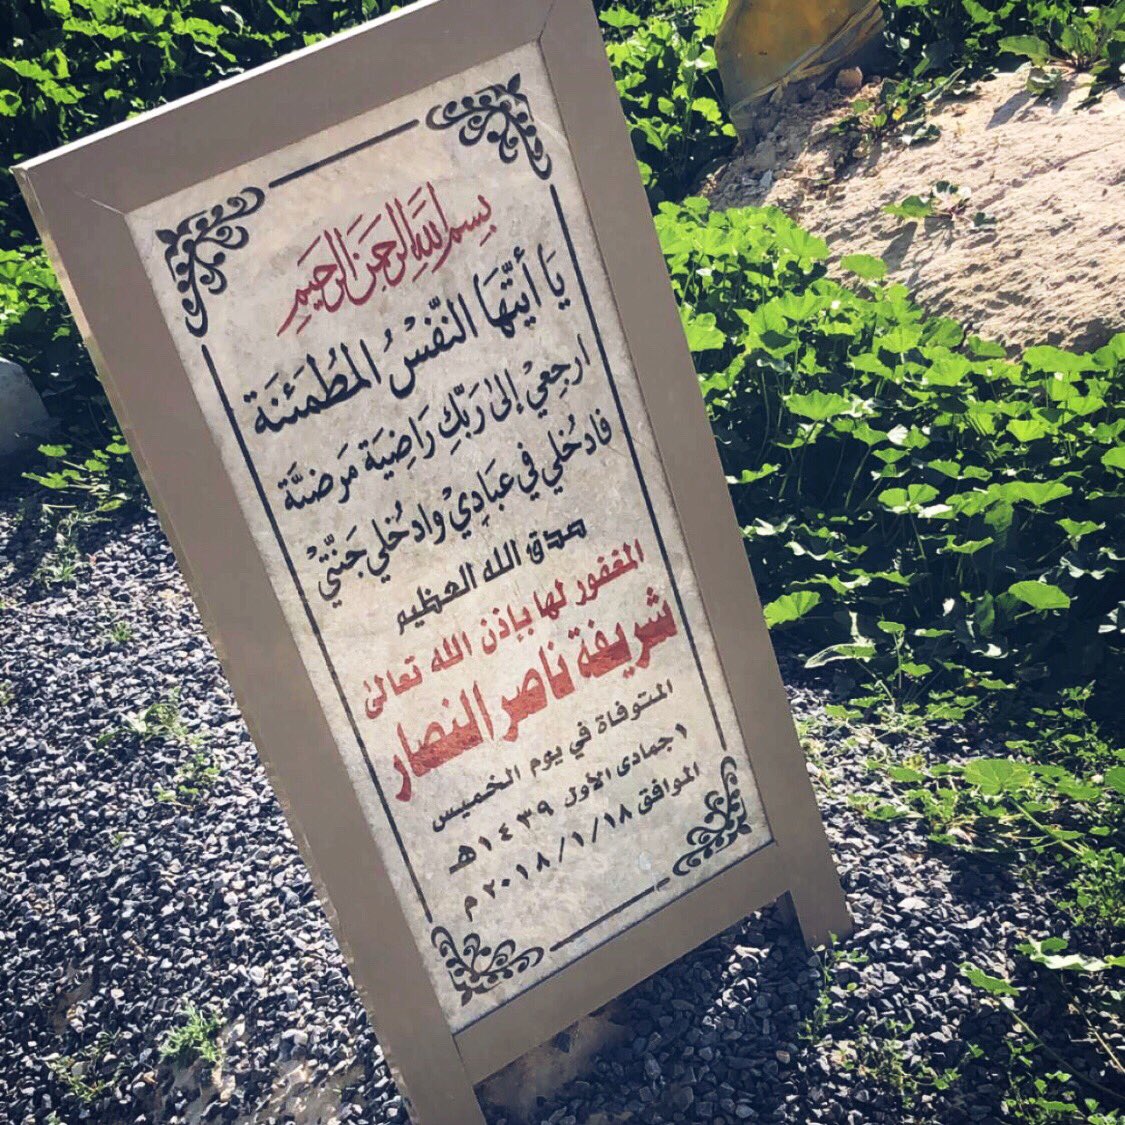 بِسْمِ اللَّهِ الرَّحْمَنِ الرَّحِيمِ
يَا أَيَّتُهَا النَّفْسُ المُطْمَئِنَة
ارجِعِيْ إلىٰ رَبِّكِ رَاضِيَة مَرضيَّة
فادخُلي في عِبَادِيْ وادخُلي جَنَّتيْ
صدق الله العظيم
المغفور لها بإذن الله تعالىٰ
شريفة ناصر النصار
المتوفاة في يوم الخميس
١ جمادى الأول ١٤٣٩هـ
الموافق ٢٠١٨/١/١٨م